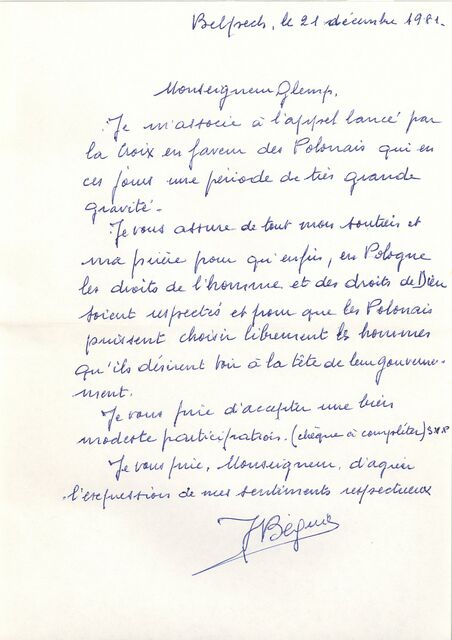 Belpech, le 21 décembre 1981.
Monseigneur Glemp,
Je m'associe à l'appel lancé par
la Croix en faveur des Polonais qui en
ces jours une période de très grande
gravité.
Je vous assure de tout mon soutien et
ma prière pour qu'enfin, en Pologne
les droits de l'homme et des droits de Dieu
soient respectés et pour que les Polonais
puissent choisir librement les hommes
qu'ils désirent voir à la tête de leur gouverne-
ment.
Je vous prie d'accepter une bien
modeste participation. (chèque à compléter) SVP
Je vous prie, Monseigneur, d'agréer
l'expression de mes sentiments respectueux